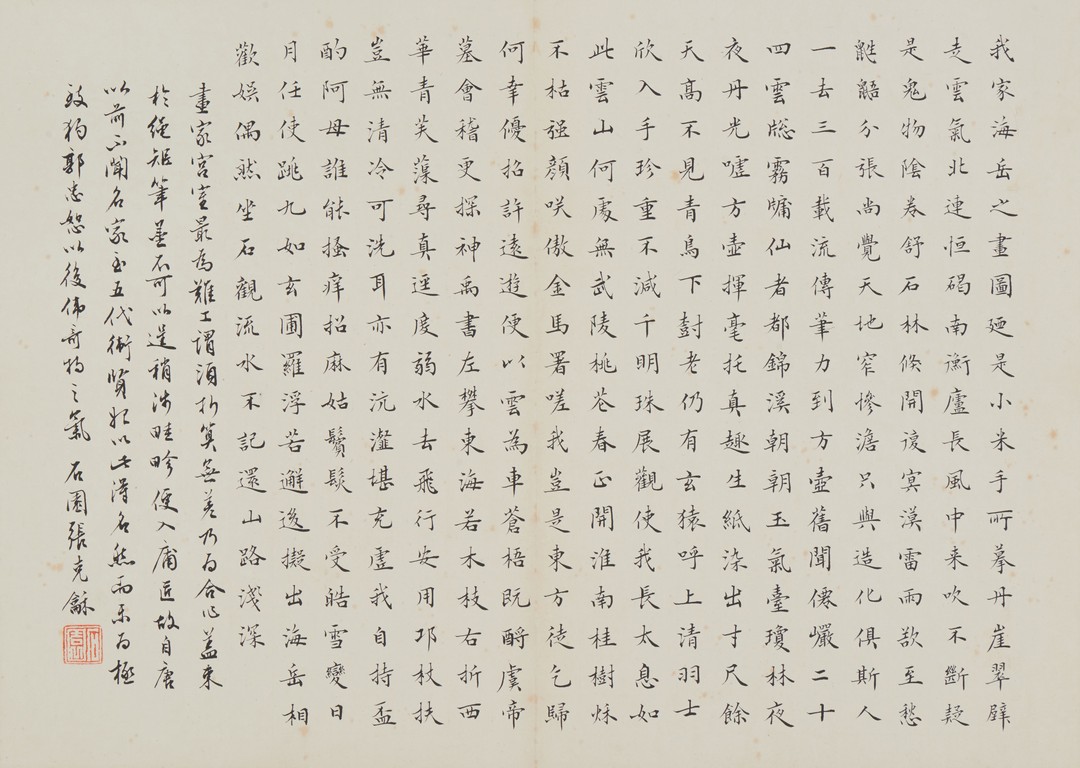 我家海岳之畫圖廼是小米手所摹丹崖翠壁
走雲氣北連恒碣南衡廬長風中来吹不斷疑
是鬼物陰卷舒石林倏開復冥漠雷雨欻至愁
鼪鼯分張尚覺天地窄慘澹只與造化俱斯人
一去三百載流傳筆力到方壺舊聞僊巖二十
四雲牎霧牖仙者都錦溪朝朝玉氣臺瓊林夜
夜丹光嘘方壺揮毫托真趣生紙染出寸尺餘
天高不見青鳥下尌老仍有玄猿呼上清羽士
欣入手珍重不減千明珠展觀使我長太息如
此雲山何處無武陵桃花春正開淮南桂樹秌
不枯强顔咲傲金馬署嗟我豈是東方徒乞歸
何幸優招許遠遊便以雲為車蒼梧既酹虞帝
墓會稽更探神禹書左攀東海若木枝右折西
華青芙蕖尋真逕度弱水去飛行安用邛杖扶
豈無清泠可洗耳亦有沆瀣堪充虛我自持盃
酌阿母誰能搔痒招麻姑鬢髮不受皓雪變日
月任使跳九如玄圃羅浮若邂逅擬出海岳相
歡娱偶然坐石觀流水不記還山路淺深
畫家宮室最為難工謂須折算無差乃為合作蓋束
於繩矩筆墨不可以逞稍涉畦畛便入庸匠故自唐
以前不聞名家至五代衛賢始以此得名然而未為極
致獨郭忠恕以後偉奇特之氣 石園張克龢